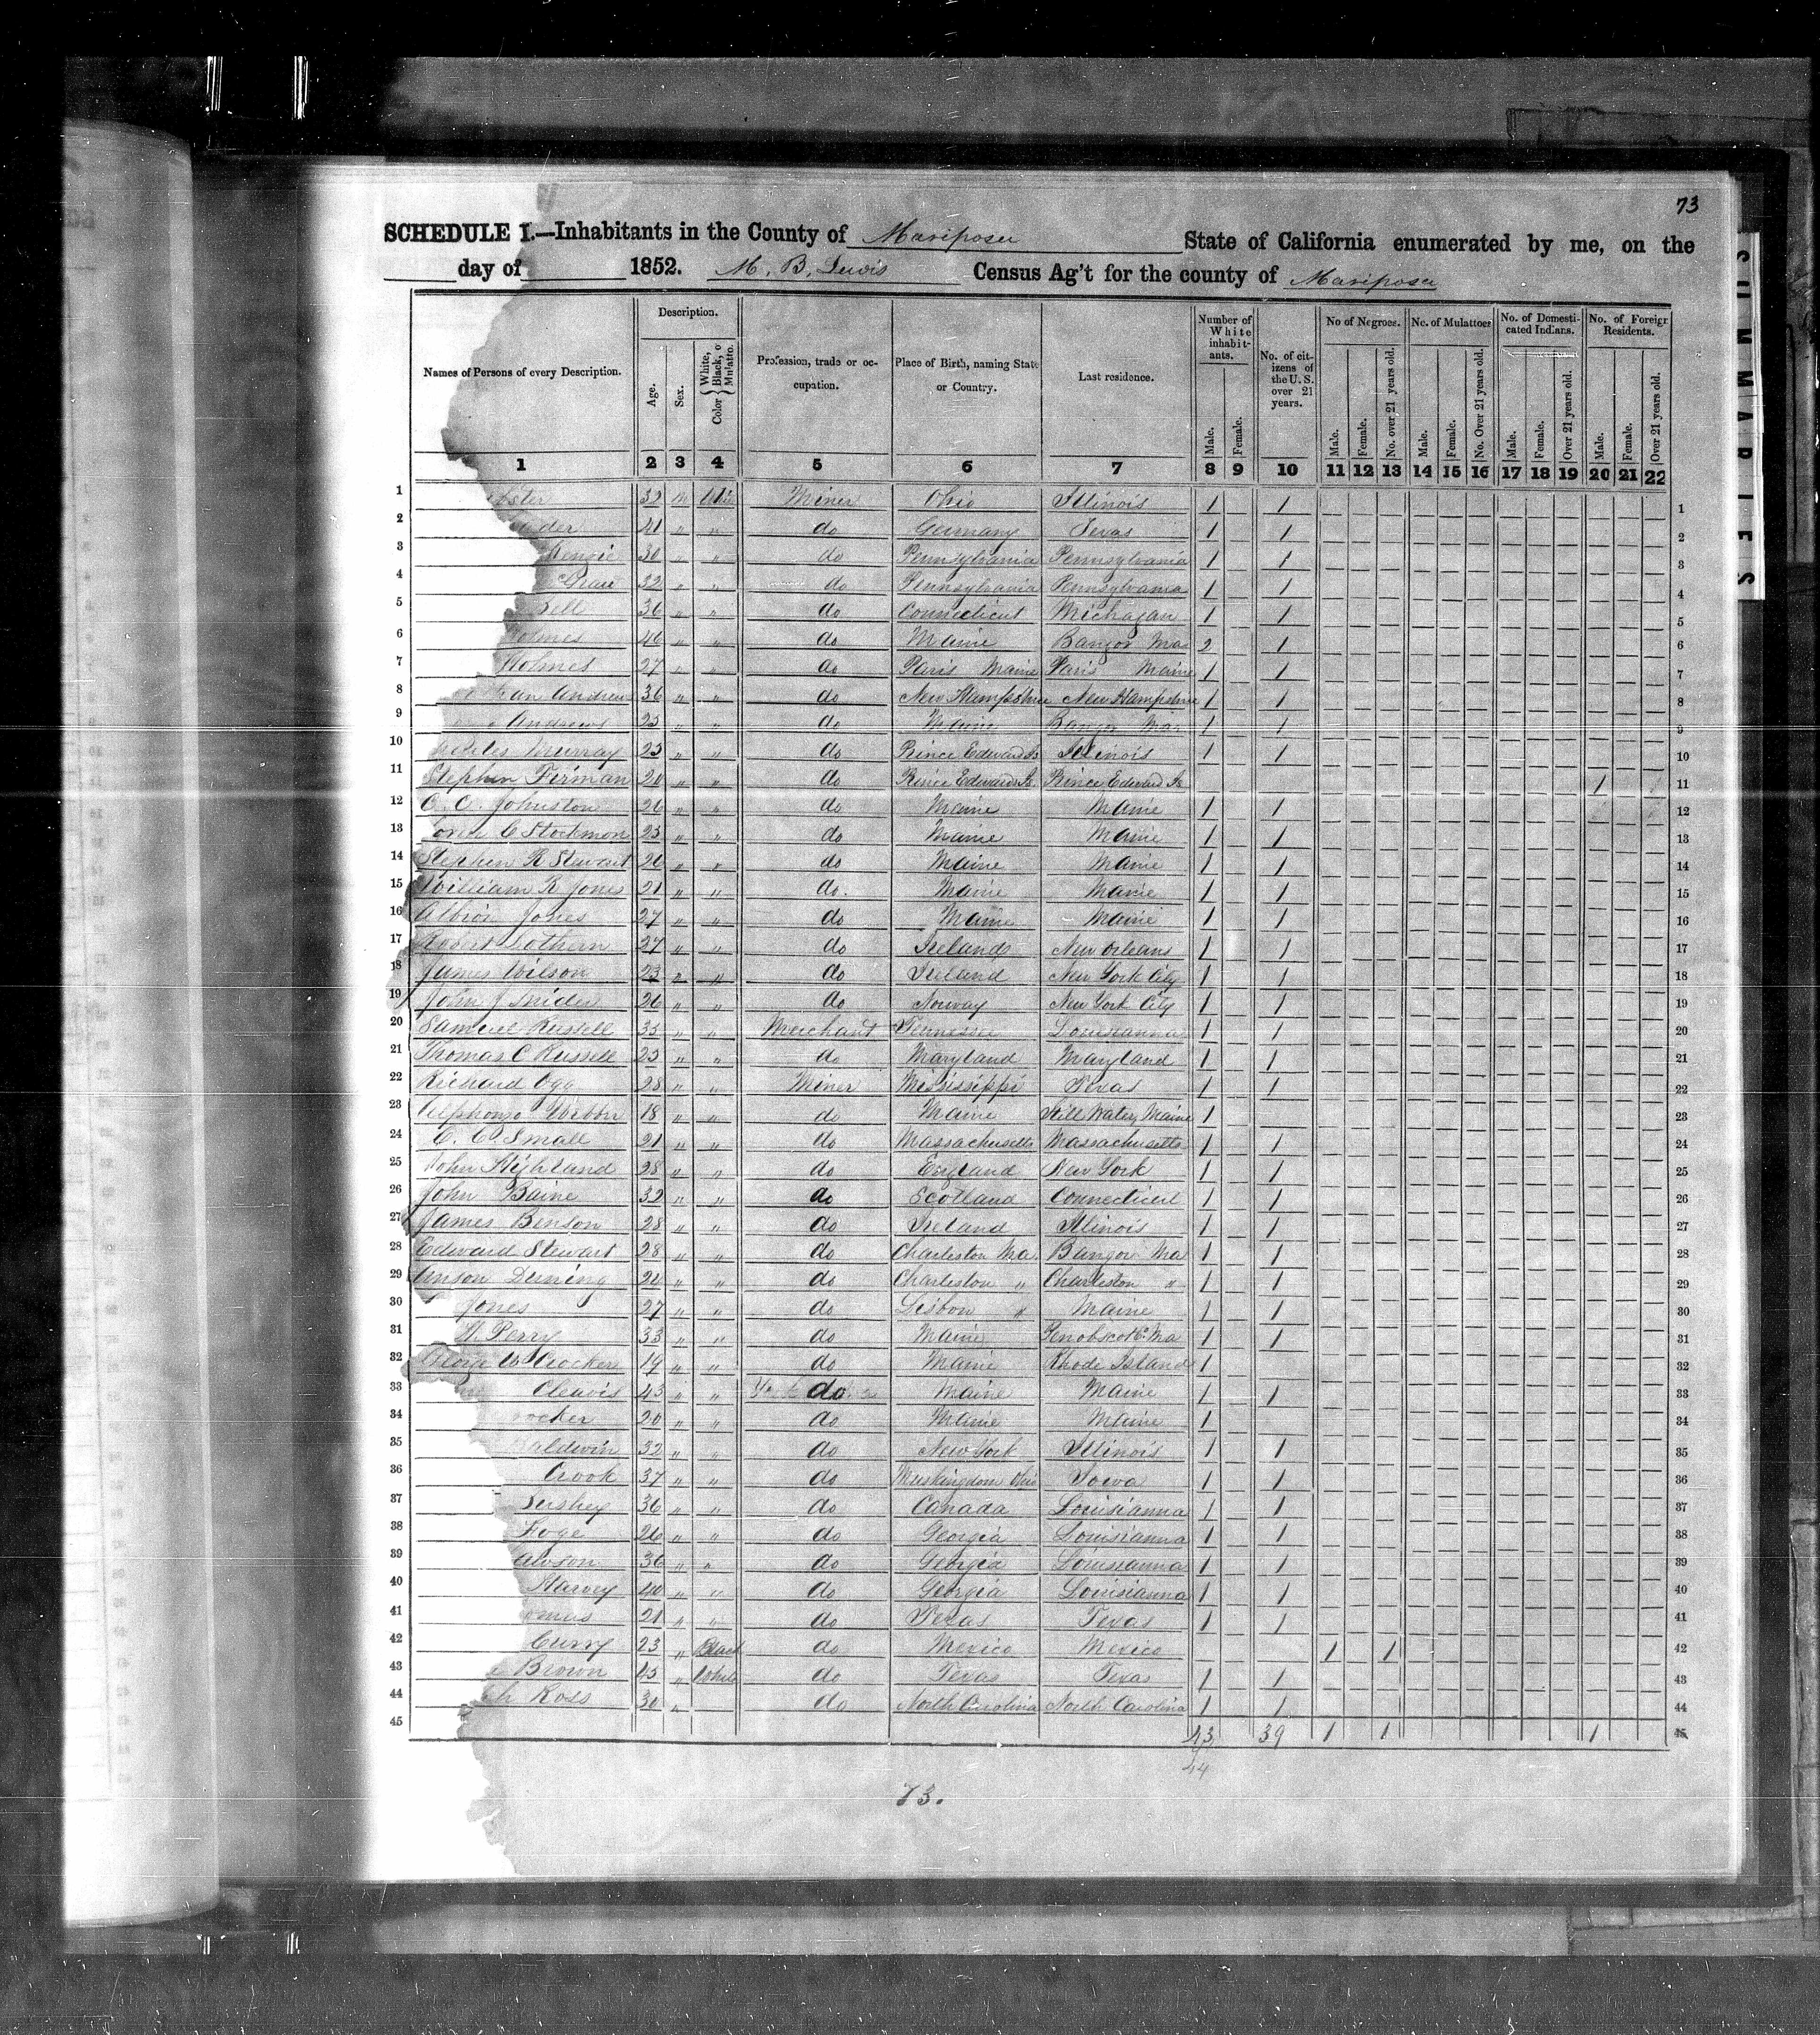 73
SCHEDULE I.—Inhabitants in the County of Mariposa State of California enumerated by me, on the
day of 1852. M. B. Lewis Census Ag't for the county of Mariposa
Names of Persons of every Description. Description. Age. Sex. Color { White, Black, or Mulatto. Profession, trade or occupation. Place of Birth, naming State or Country. Last residence. Number of White inhabitants. Male. Female. No. of citizens of the U. S. over 21 years. No of Negroes. Male. Female. No. over 21 years old. No. of Mulattoes Male. Female. No. Over 21 years old. No. of Domesticated Indians. Male. Female. Over 21 years old. No. of Foreign Residents. Male. Female. Over 21 years old.
1 2 3 4 5 6 7 8 9 10 11 12 13 14 15 16 17 18 19 20 21 22
1 32 m White Miner Ohio Illinois 1 1 1
2 41 " " do Germany Texas 1 1 2
3 30 " " do Pennsylvania Pennsylvania 1 1 3
4 32 " " do Pennsylvania Pennsylvania 1 1 4
5 36 " " do Connecticut Michagan 1 1 5
6 Holmes 46 " " do Maine Bangor Mai 2 1 6
7 Holmes 27 " " do Paris Maine Paris Maine 1 1 7
8 Andrews 36 " " do New Hampshire New Hampshire 1 1 8
9 Andrews 25 " " do Maine Bangor Mai 1 1 9
10 Murray 25 " " do Prince Edward Is Illinois 1 1 10
11 Stephen Firman 20 " " do Prince Edward Is. Prince Edward Is 1 11
12 C. C. Johnston 26 " " do Maine Maine 1 1 12
13 C Stockmon 25 " " do Maine Maine 1 1 13
14 Stephen R Stewart 26 " " do Maine Maine 1 1 14
15 William R Jones 21 " " do. Maine Maine 1 1 15
16 Albion Jones 27 " " do Maine Maine 1 1 16
17 Robert Lothern 27 " " do Ireland New Orleans 1 1 17
18 James Wilson 23 " " do Ireland New York City 1 1 18
19 John J Snider 26 " " do Norway New York City 1 1 19
20 Samuel Russell 35 " " Merchant Tennessee Louisianna 1 1 20
21 Thomas C Russell 25 " " do Maryland Maryland 1 1 21
22 Richard Ogg 28 " " Miner Mississippi Texas 1 1 22
23 Alphonzo Webber 18 " " do Maine Still Water, Maine 1 23
24 C. C. Small 21 " " do Massachusetts Massachusetts 1 1 24
25 John Highland 28 " " do England New York 1 1 25
26 John Baine 32 " " do Scotland Connecticut 1 1 26
27 James Benson 28 " " do Ireland Illinois 1 1 27
28 Edward Stewart 28 " " do Charleston Ma Bangor Ma 1 1 28
29 Anson Dening 24 " " do Charleston " Charleston " 1 1 29
30 Jones 27 " " do Lisbon " Maine 1 1 30
31 H. Perry 33 " " do Maine Penobscot Co Ma 1 1 31
32 George W Crocker 19 " " do Maine Rhode Island 1 32
33 Cleavis 43 " " do Maine Maine 1 1 33
34 ocker 20 " " do Maine Maine 1 34
35 aldwin 32 " " do New York Illinois 1 1 35
36 Crook 37 " " do Muskingdom Ohio Iowa 1 1 36
37 36 " " do Canada Louisianna 1 1 37
38 26 " " do Georgia Louisianna 1 1 38
39 awson 36 " " do Georgia Louisianna 1 1 39
40 Harvey 40 " " do Georgia Louisianna 1 1 40
41 21 " " do Texas Texas 1 1 41
42 Curry 23 " Black do Mexico Mexico 1 1 42
43 Brown 45 " White do Texas Texas 1 1 43
44 h Ross 30 " do North Carolina North Carolina 1 1 44
45 43 39 1 1 1 45
44
73.
SUMMARIES